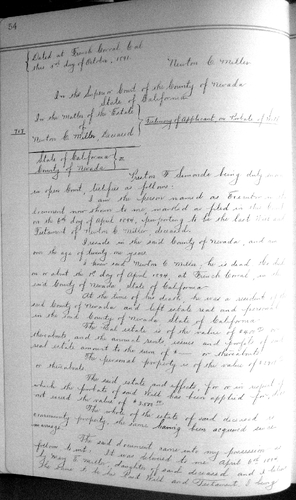 54
Dated at French Corral, Cal
this 1st day of October, 18
Newton C Miller
In the Superior Court of the County of Nevada
State of California
In the Matter of the Estate
of
Newton C Miller Deceased
Testimony of Applicant, on Probate of Will
State of California
County of Nevada
F Simonds being duly
in open Court, testifies as follows:
I am the person named as Executor in
document now shown to me marked as filed in this
on the 6th day of April 1894, purporting to be the last Will and
Testament of Newton C Miller, deceased.
I reside in the said County of Nevada, and am
over the age of twenty one years
I knew said Newton C Miller, he is dead. He died
on or about the 1st day of April 1894, at French Corral, in the
said County of Nevada, State of California
At the time of his death, he was a resident of the
said County of Nevada and left estate real and personal
in the said County of Nevada State of California
The real estate is of the value of
thereabouts and the annual rents, issues and profits of
real estate amount to the sum of $ — or thereabouts
The personal property is of the value of
or thereabouts
The said estate and effects, for or in respect of
which the probate of said Will has been applied for does
not exceed the value of
The whole of the estate of said deceased is
community property, the same having been acquired since
marriage
The said document came into my possession as
follows to wit: It was delivered to me April 6th 1894
by Mary E Miller, daughter of said deceased and I believe
the same to be the last Will and Testament, I being